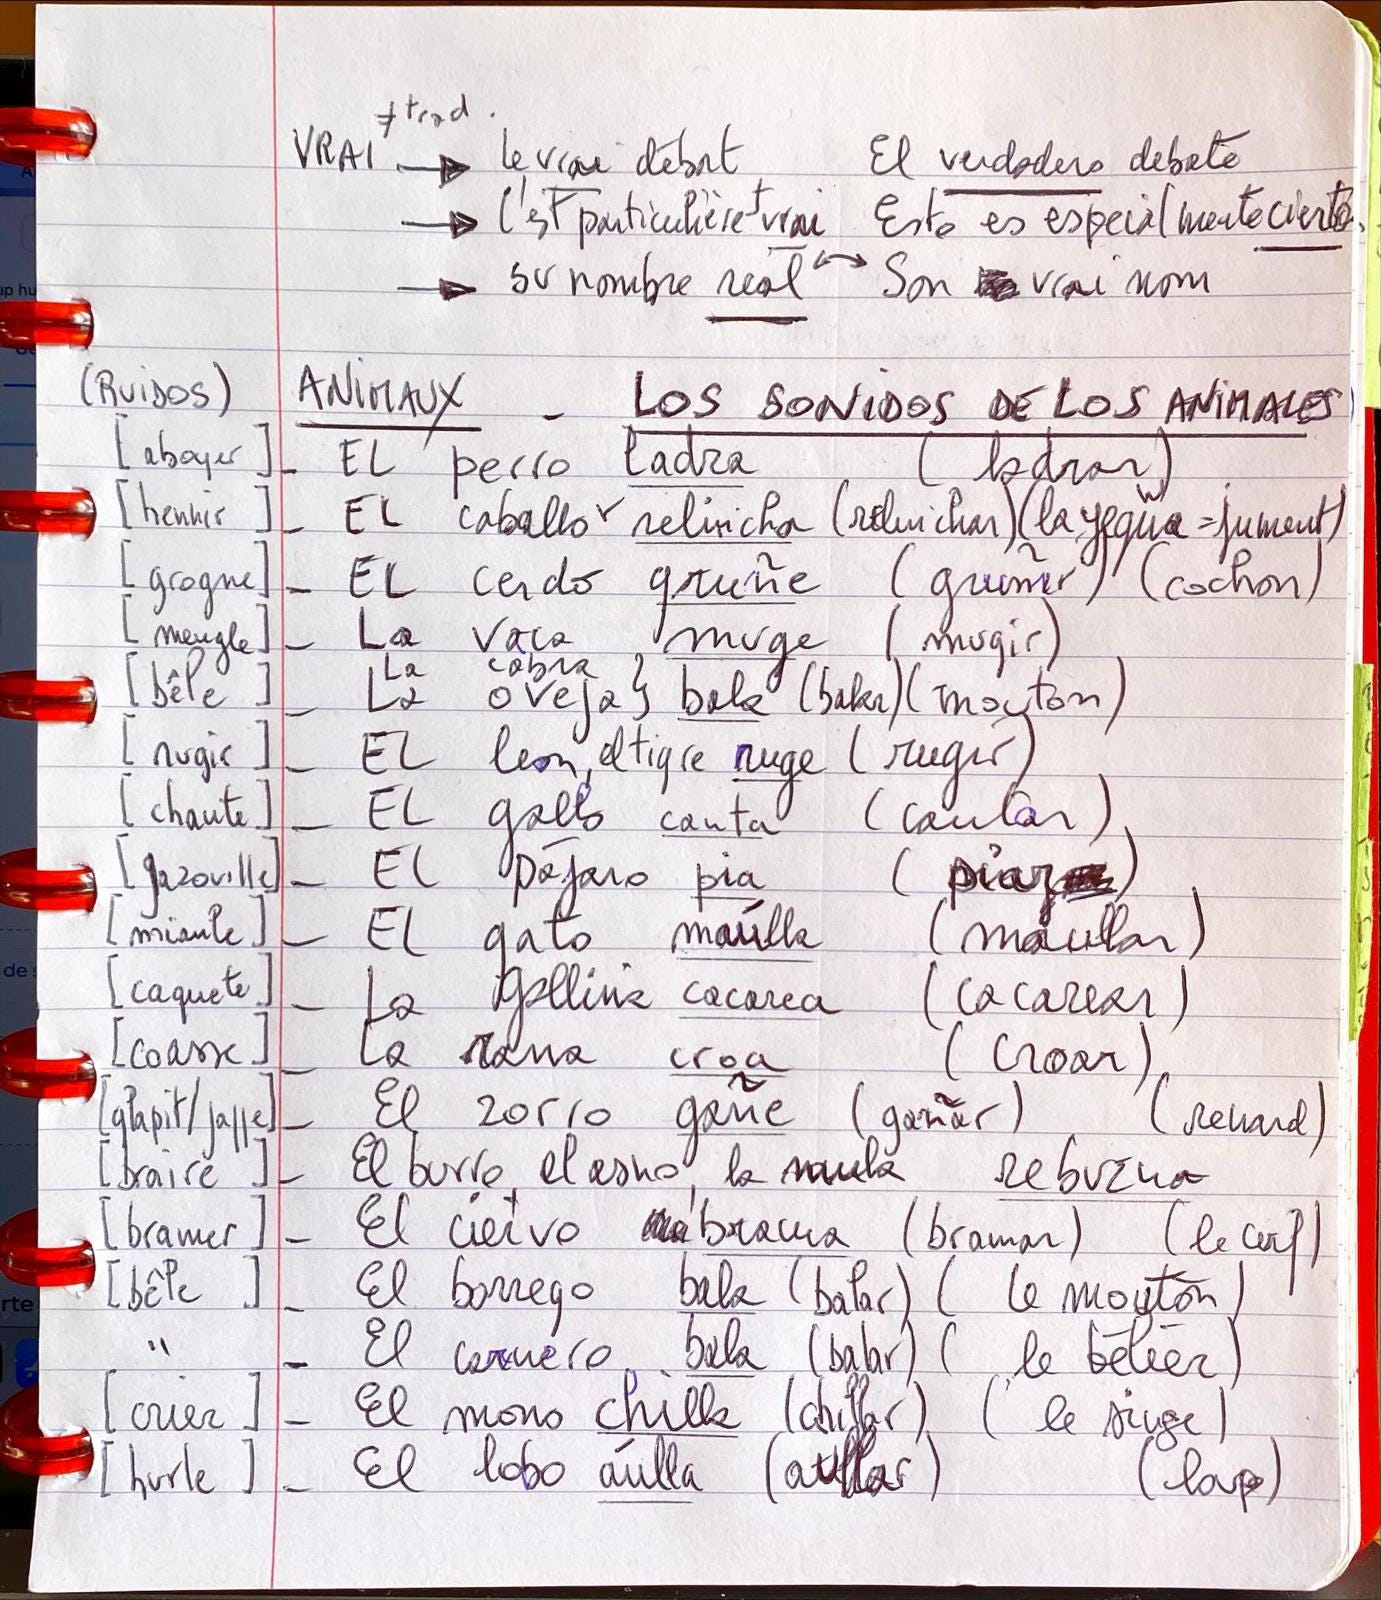 VRAI ≠ trad.
→ le vrai débat El verdadero debate
→ C'est particulière^t vrai Esto es especialmente cierto.
→ su nombre real ↔ Son vrai nom
(RUIDOS) ANIMAUX - LOS SONIDOS DE LOS ANIMALES
[aboyer] - EL perro ladra (ladrar)
[hennir] - EL caballo relincha (relinchar) (la yegua = jument)
[grogne] - EL cerdo gruñe (gruñir) (cochon)
[meugle] - La vaca muge (mugir)
La cabra
[bêle] - La oveja} bala (balar) (mouton)
[rugir] - EL leon, el tigre ruge (rugir)
[chante] - EL gallo canta (cantar)
[gazouille] - El pájaro pia (piar)
[miaule] - EL gato maúlla (maullar)
[caquete] - La gallina cacarea (cacarear)
[coasse] - La rana croa (croar)
[glapit/jappe] - El zorro gañe (gañar) (renard)
[braire] - El burro, el asno, la mula rebuzna
[bramer] - El ciervo brama (bramar) (le cerf)
[bêle] - El borrego bala (balar) (le mouton)
" - El carnero bala (balar) (le bélier)
[crier] - El mono chilla (chillar) (le singe)
[hurle] - El lobo aúlla (aullar) (loup)